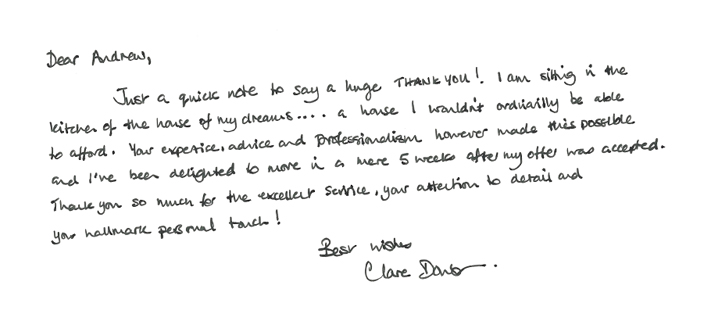 Dear Andrew,
Just a quick note to say a huge THANK YOU! I am sitting in the
kitchen of the house of my dreams.... a house I wouldn't ordinarily be able
to afford. Your expertice, advice and professionalism however made this possible
and I've been delighted to move in a mere 5 weeks after my offer was accepted.
Thank you so much for the excellent service, your attention to detail and
your hallmark personal touch!
Best wishes
Clare